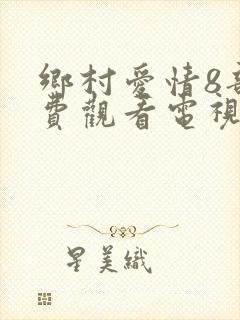 鄉村愛情8
費觀看電視
星美織